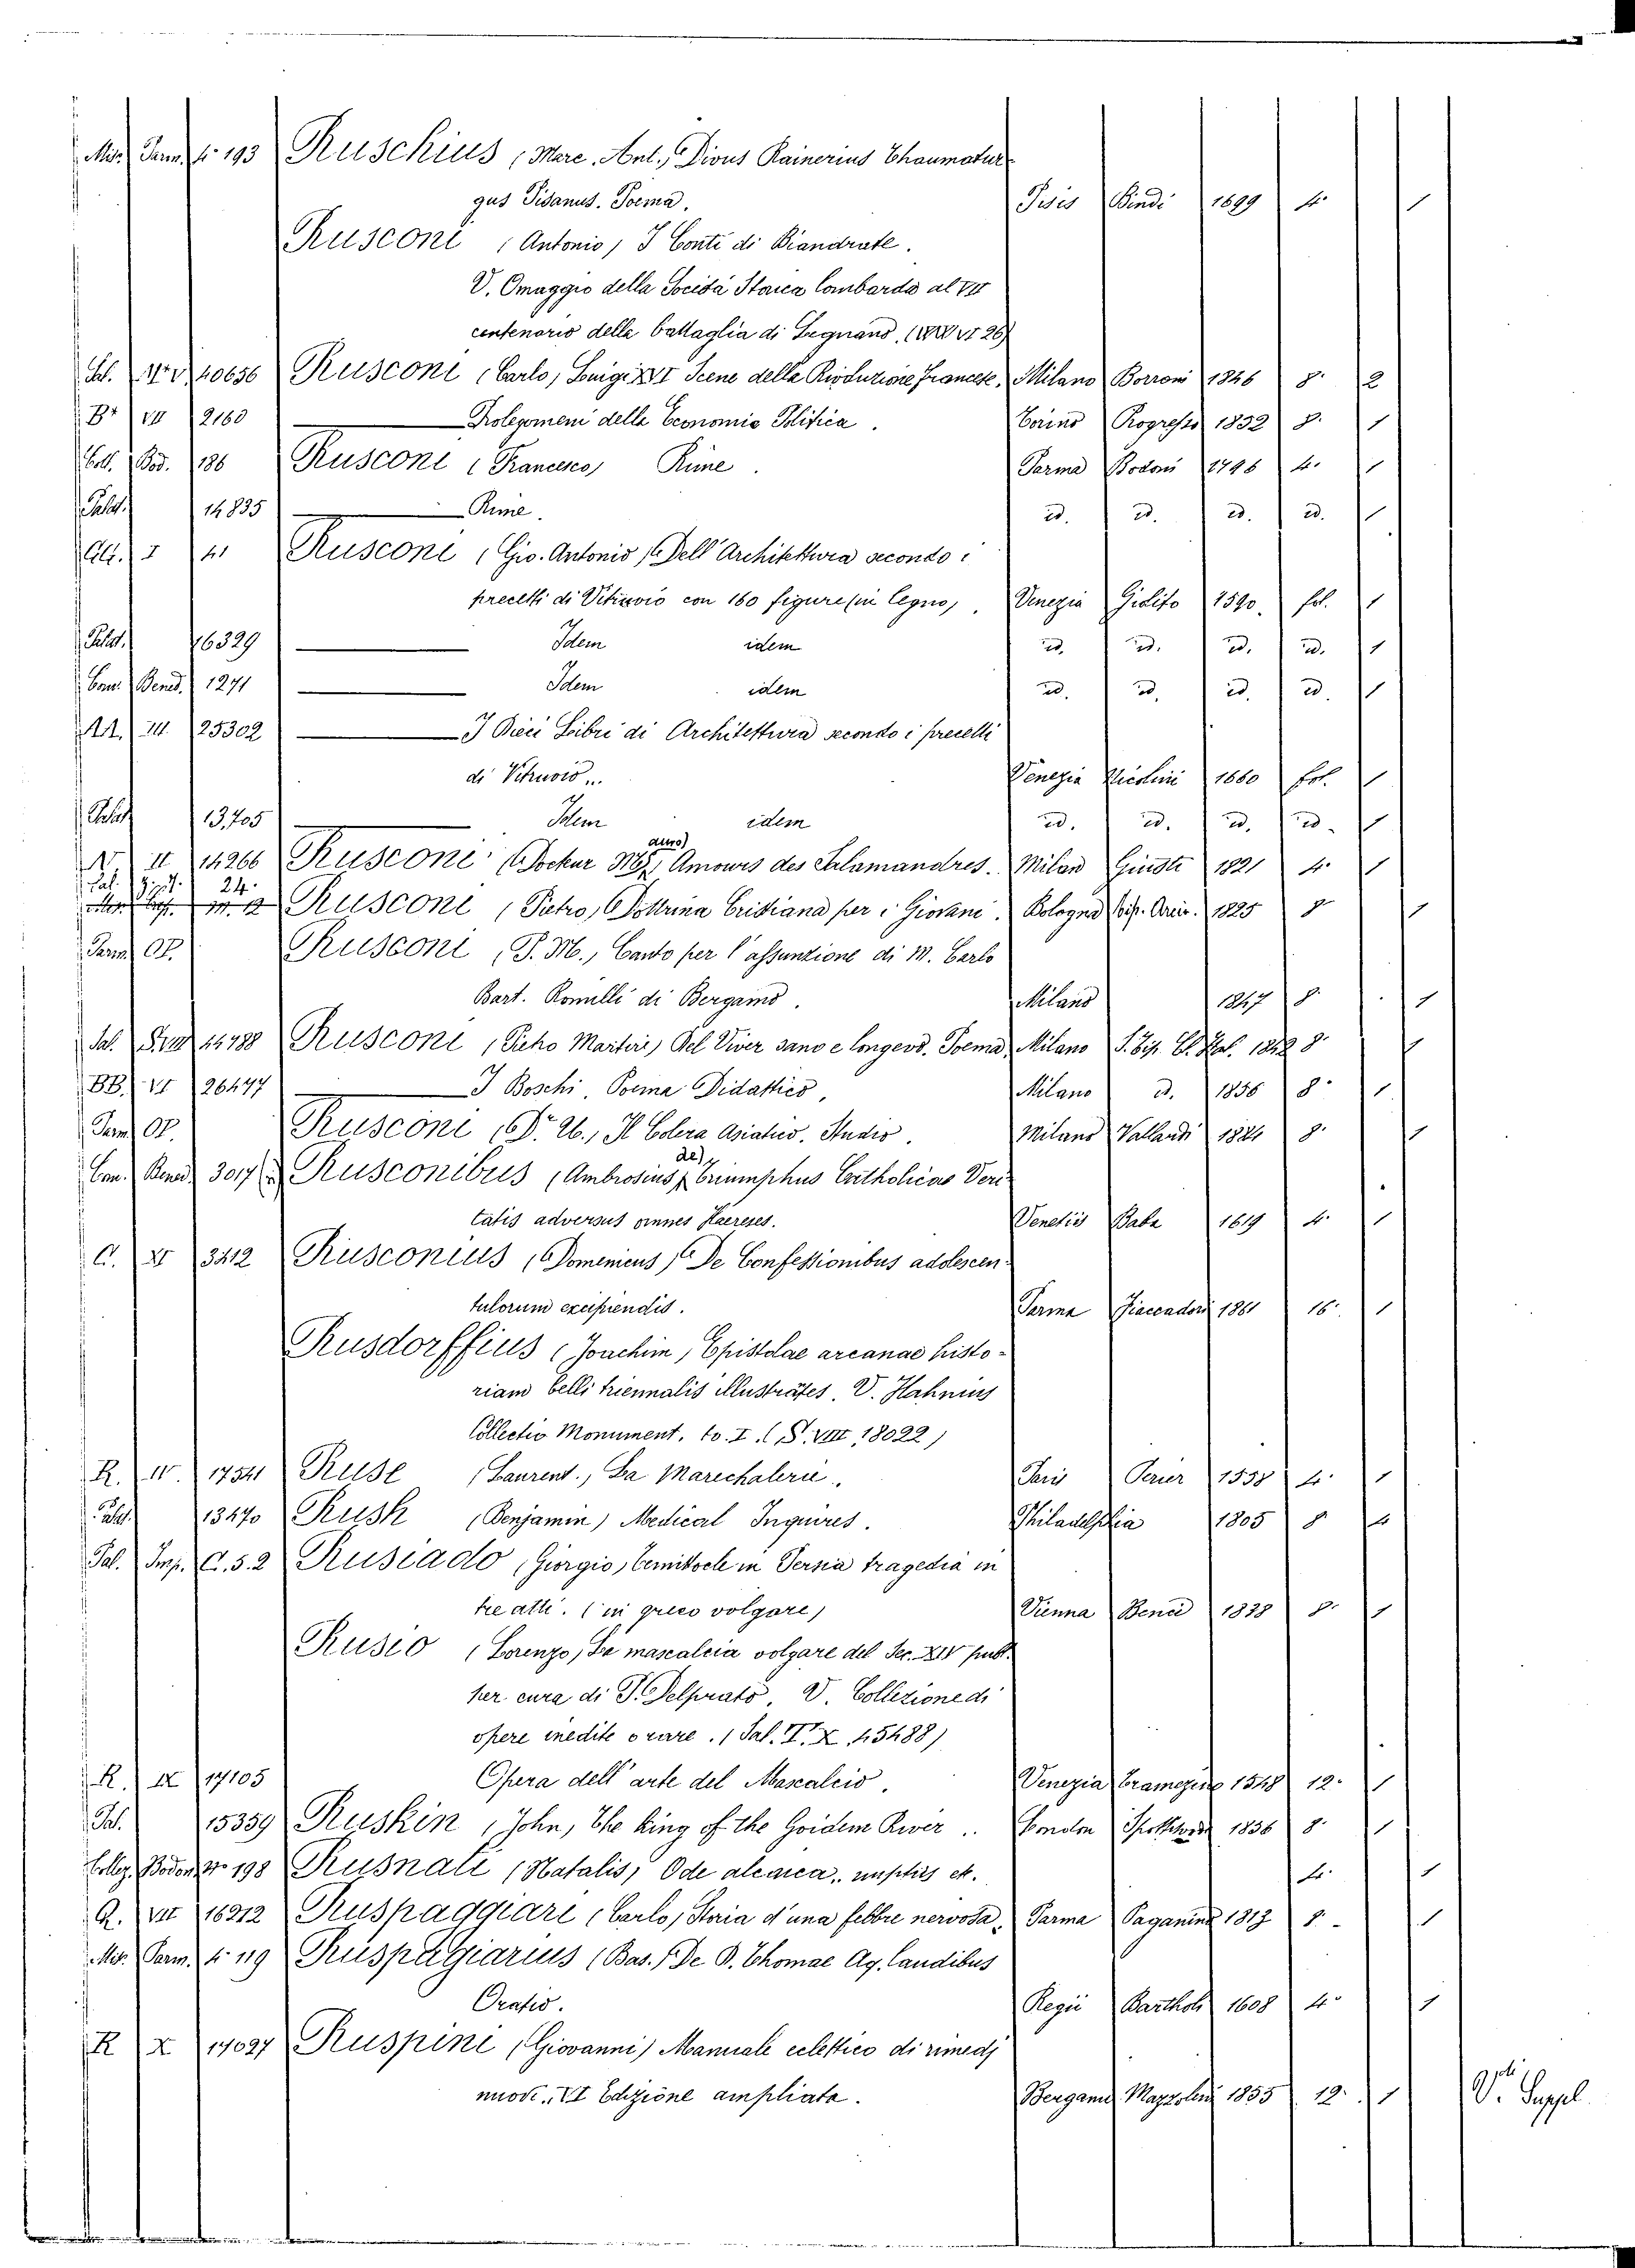 Mis. Parm. fo 193 Ruschius (Marc. Ant.) Divus Rainerius Thaumatur
gus Pisanus. Poema. Pisis Bindi 1699 4. 1
Rusconi (Antonio) I Conti di Biandrate.
V. Omaggio della Società Storica Lombarda al VII
centenario della battaglia di Legnano. 26)
10656 Rusconi (Carlo) Luigi XVI Scene della Rivoluzione francese. Milano Borroni 1846 8. 2
Br VII 2160 Prolegomeni della Economia Politica. Torino Progresso 1852 8. 1
Coll. Bod. 186 Rusconi (Francesco) Rime. Parma Bodoni 1796 4. 1
Palat. 14835 Rime. id. id. id. id. 1
I Rusconi (Gio. Antonio) Dell'Architettura secondo i
precetti di Vitruvio con 160 figure (in legno). Venezia Giolito 1590. fol. 1
Palat. 16329 Idem idem id. id. id. id. 1
Con. Bened. 1271 Idem idem id. id. id. id. 1
25302 I Dieci Libri di Architettura secondo i precetti
di Vitruvio... Venezia Nicolini 1660 fol. 1
Palat. 13,705 Idem idem id. id. id. id. 1
II 14266 Rusconi (Docteur aus) Amours des Salamandres. Milan Giusti 1821 4. 1
24. Rusconi (Pietro) Dottrina Cristiana per i Giovani. Bologna Tip. Arciv. 1825 8 1
Parm. Op. Rusconi (P. M.) Canto per l'assunzione di M. Carlo
Bart. Romilli di Bergamo. Milano 1847 8. 1
Sal. 14788 Rusconi (Pietro Martire) Del Viver sano e longevo. Poema. Milano 8. 1
BB. VI 26477 I Boschi. Poema Didattico. Milano id. 1856 8. 1
Parm. Op. Rusconi (Dr. U.) Il Colera Asiatico. Studio. Milano Vallardi 8. 1
Con. Bened. 3017 Rusconibus (Ambrosius de) Triumphus Catholicae Veri
tatis adversus omnes Haereses. Venetiis Baba 1619 4. 1
C. XI 3412 Rusconius (Domenicus) De Confessionibus adolescen-
tulorum excipiendis. Parma Fiaccadori 1861 16. 1
Rusdorffius (Joachim) Epistolae arcanae histo-
riam belli triennalis illustrates. V. Hahnius
Collectio Monument. to. I. (S. VIII, 18022)
R. IV. 17541 Ruse (Laurent.) La Marechalerie. Paris Perier 4. 1
Palat. 13470 Rush (Benjamin) Medical Inquires. Philadelphia 1805 8
Pal. Imp. C. 5. 2 Rusiado (Giorgio) Temistocle in Persia tragedia in
tre atti. (in greco volgare) Vienna Benco 1838 8. 1
Rusio (Lorenzo) La mascalcia volgare del Sec. XIV pubb.
per cura di P. Delprato. V. Collezione di
opere inedite o rare. (Sal. I. X. 45488)
R. IX 17105 Opera dell'arte del Mascalcio. Venezia Tramezino 1548 12. 1
Pal. 15359 Ruskin (John) The king of the Goldem River.. London 1856 8. 1
Collez. Bodon. No 198 Rusnati (Natalis) Ode alcaica, nuptiis et. 4. 1
Q. VII 16212 Ruspaggiari (Carlo) Storia d'una febbre nervosa. Parma Paganino 1817 8. 1
Mis. Parm. fo 119 Ruspagiarius (Bas.) De D. Thomae Aq. laudibus
Oratio. Regii Barthol. 1608 4. 1
R X 17027 Ruspini (Giovanni) Manuale eclettico di rimedj
nuovi.. VI Edizione ampliata. Bergamo Mazzoleni 1855 12. 1 V. Suppl